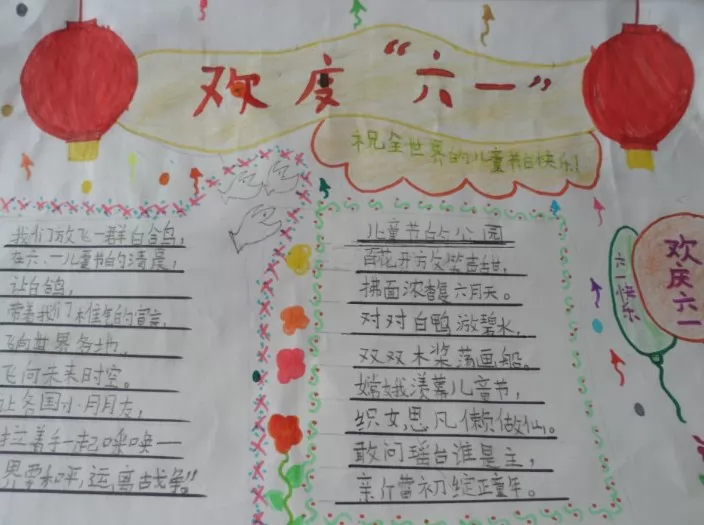 欢度“六一”
祝全世界的儿童节日快乐!
我们放飞一群白鸽,
在六.一儿童节的清晨,
让白鸽,
带着我们的宣言,
飞向世界各地,
飞向未来时空。
让各国小朋友,
拉着手一起呼唤一
界要和平,远离战争”
儿童节的公园
百花开放笑声甜,
拂面浓香复六月天。
对对白鸭游碧水,
双双木桨荡画船。
嫦娥羡慕儿童节,
织女思凡懒做仙。
敢问瑶台谁是主,
初绽正童年。
六一快乐
欢庆六一